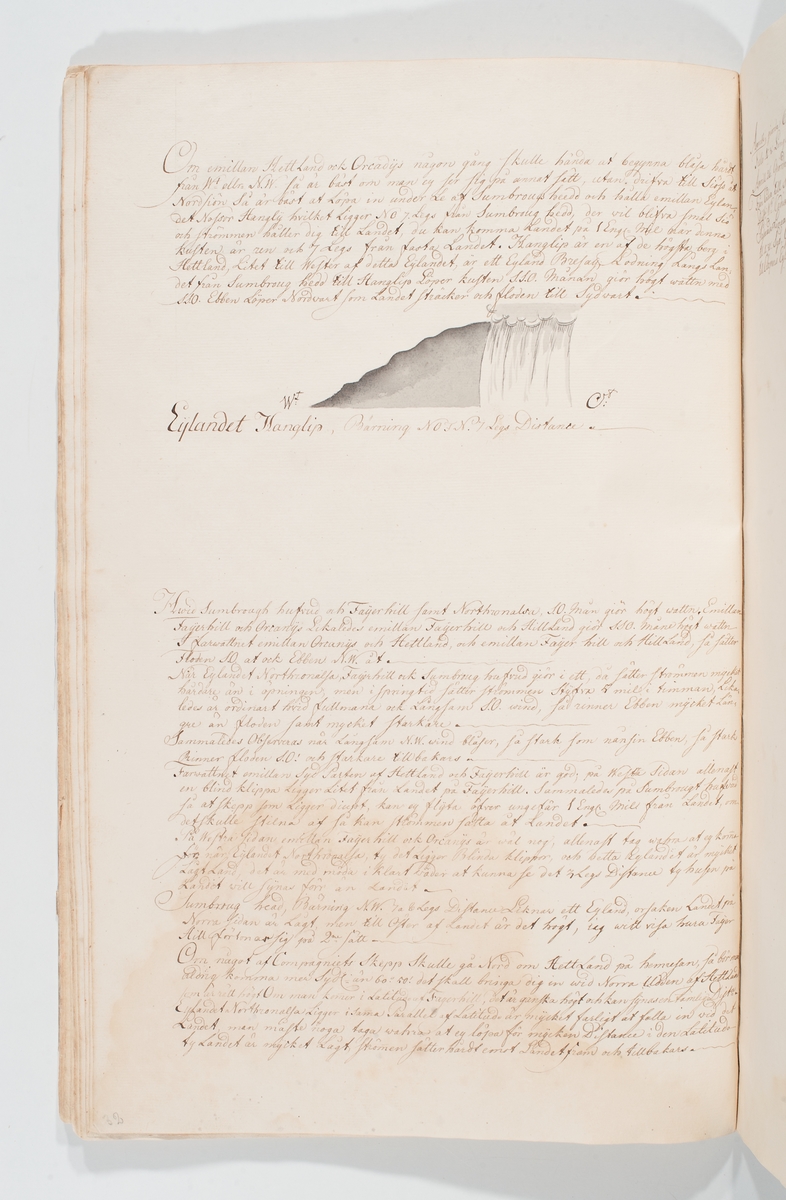 Om emillan HettLand och Orcadijs någon gång skulle hända at begynna blåsa hårdt
från Wt. ellr N.W. så är bäst om man ej ser sig på annet sätt, utan drifva till Siöss åt
Nordsiön Så är bäst at Löpa in under Le af Sumbrough hedd och hålla emillan Eylan-
det Hanglip hvilket Ligger NO 7 Legs från Sumbroug hedd, der vil blifva smål Siö
och strömmen håller dig till Landet, du kan komma Landet på 1 Engl Mil när denna
kusten är ren och 7 Legs från fasta Landet. Hanglip är en af de högsta berg i
Hettland, Litet till Wester af detta Eylandet, är ett Eyland Lodning Längs Lan-
det från Sumbroug hedd till Hanglip Löper kusten S.S.O. Månan giör högt watten med
S.S.O. Ebben Löper Nordvart som Landet sträcker och floden till Sydvart.
Wt. Ot.
Eylandet Hanglip, Bärning NO t N. 7 Legs Distance.
Hwid Sumbrough hufvud och Faijerhill samt Northronalsa, SO. Mån giör högt watten Emillan
Faijerhill och Orcanijs Likaledes emillan Faijerhill och HettLand giör SSO. Måne högt watten
I farwattnet emillan Orcanijs och Hettland, och emillan Faijer hill och HettLand, så sätter
Floden SO. at och Ebben N.W. åt.
När Eylandet Northronalsa Faijerhill och Sumbroug hufvud giör i ett, då sätter strömmen mycket
hårdare än i öpningen, men i springtid sätter strömmen Styfva 5 mil i timman, Lika-
ledes är ordinart hvid fullmåna och Långsam SO. wind, så rinner Ebben mycket Län-
gre än floden samt mycket starkare.
Sammaledes Observeras när Långsam N.W. wind blåser, så stark som nånsin Ebben, så stark
Rinner floden SO: och starkare tillbakars
Farwattnet emillan Syd Parten af HettLand och Faijerhill är god, på Westra Sidan allenast
en blind klippa Ligger Litet från Landet på Faijerhill. Sammaleda på Sumbrougt hufvud
så at skepp som Ligger diupt, kan ej flyta öfver ungefär 1 Engl. Mill från Landet, om
det skulle stelna af så kan strömmen sätta åt Landet.
På Westra sidan emillan Faijerhill och Orcanijs är wäl nog, allenast tag wahra at ej komma
för när Eylandet Northronalsa, ty det Ligger Blinda klippor, och detta Eylandet är mycket
LågtLand, det är med möda i klart Wäder at kunna se det 3 Legs Distance ty husen på
Landet vill synes förr än Landet
Sumbroug head, Bärning N.W. 5 a 6 Legs Distance Liknar ett Eyland, orsaken Landet på
Norra sidan är Lågt, men till Oster af Landet är det högt, jag will visa huru Faijer
Hill förtmar sig på 2ne sätt
Om något af Compagniets Skepp Skulle gå Nord om HettLand på hemresan, så bör man
aldrig komma mer Sydl: än 60: 50: det skall bringa dig en wid Norra Udden af Hettland
Om man kmer i Latitude af Faijerhill, det är ganska högt och kan synes
Eylandet Northronalsa Ligger i Sama Parallel af Latitude är mycket farligt at falla in vid det
Landet, man måste noga taga wahra at ej löpa för mycken Distance i den Latituden
ty Landet är mycket Lågt, strömen sätter hårdt emot Landet fram och tillbakars
32